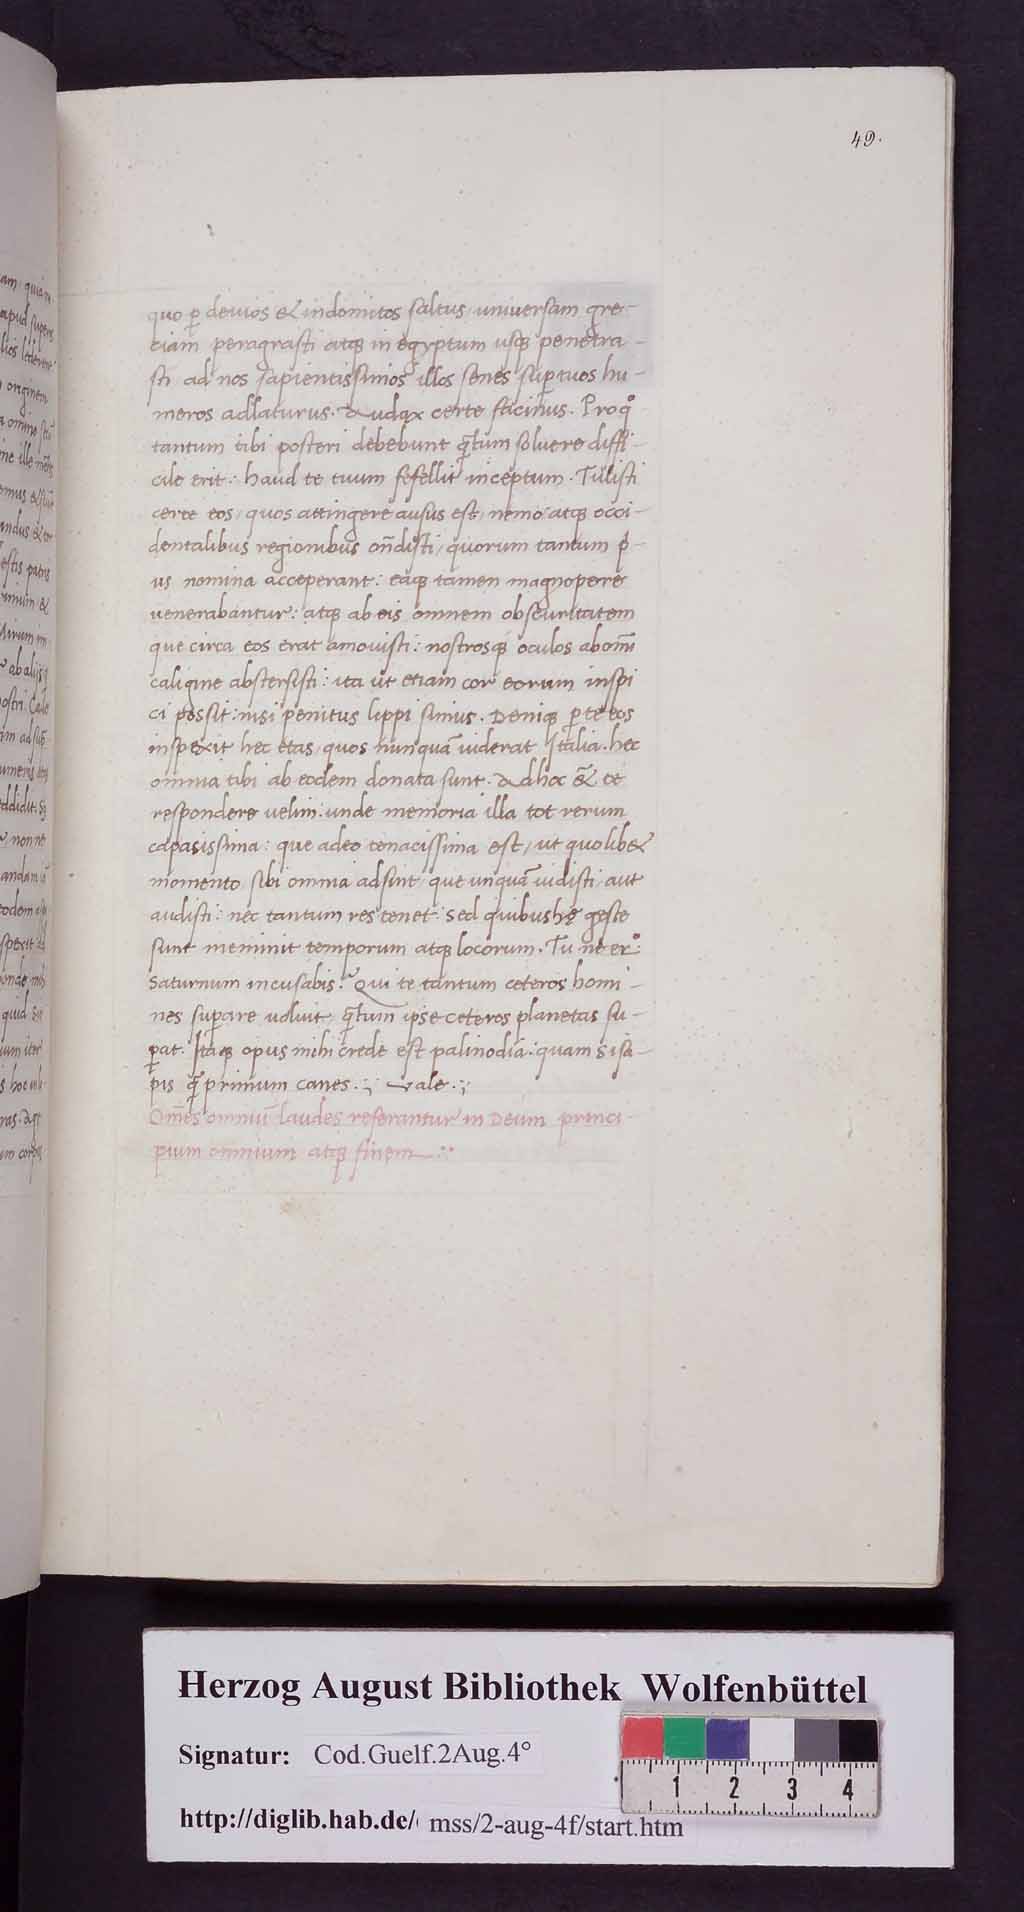 49.
quo ꝑ devios & indomitos saltus, universam gre-
ciam peragrasti atqꝫ in egyptum usqꝫ penetra-
sti ad nos sapientissimos illos senes suꝑ tuos hu-
meros adlaturus. Audax certe facinus. Pro qͦ
tantum tibi posteri debebunt qᷓtum solvere diffi-
cile erit: haud te tuum fefellit inceptum. Tulisti
certe eos, quos attingere ausus est, nemo atqꝫ occi-
dentalibus regionibus on̄disti, quorum tantum p̱-
us nomina acceperant: eaqꝫ tamen magnopere
venerabantur: atqꝫ ab eis omnem obscuritatem
que circa eos erat amovisti: nostrosqꝫ oculos ab om̄i
caligine abstersisti: ita ut etiam cor eorum inspi
ci possit: nisi penitus lippi simus. Deniqꝫ ꝑ te eos
inspexit hec etas, quos nunquā viderat Italia. hec
omnia tibi ab eodem donata sunt. Adhoc &̄ te
respondere velim: unde memoria illa tot rerum
capasissima: que adeo tenacissima est, ut quolib&
momento sibi omnia adsint, que unquā vidisti, aut
audisti: nec tantum res tenet: sed quibus hę geste
sunt meminit temporum atqꝫ locorum. Tu ne erͦ:
Saturnum incusabis? Qui te tantum ceteros homi-
nes suꝑare voluit qᷓtum ipse ceteros planetas su-
ꝑat. Itaqꝫ opus mihi crede est palinodia: quam si sa-
pis qᷓ primum canes.; Vale.;
Om̄es omniū laudes referantur in Deum princi-
pium omnium atqꝫ finem
Herzog August Bibliothek Wolfenbüttel
Signatur: Cod.Guelf.2Aug.4°
http://diglib.hab.de/ mss/2-aug-4f/start.htm
1 2 3 4